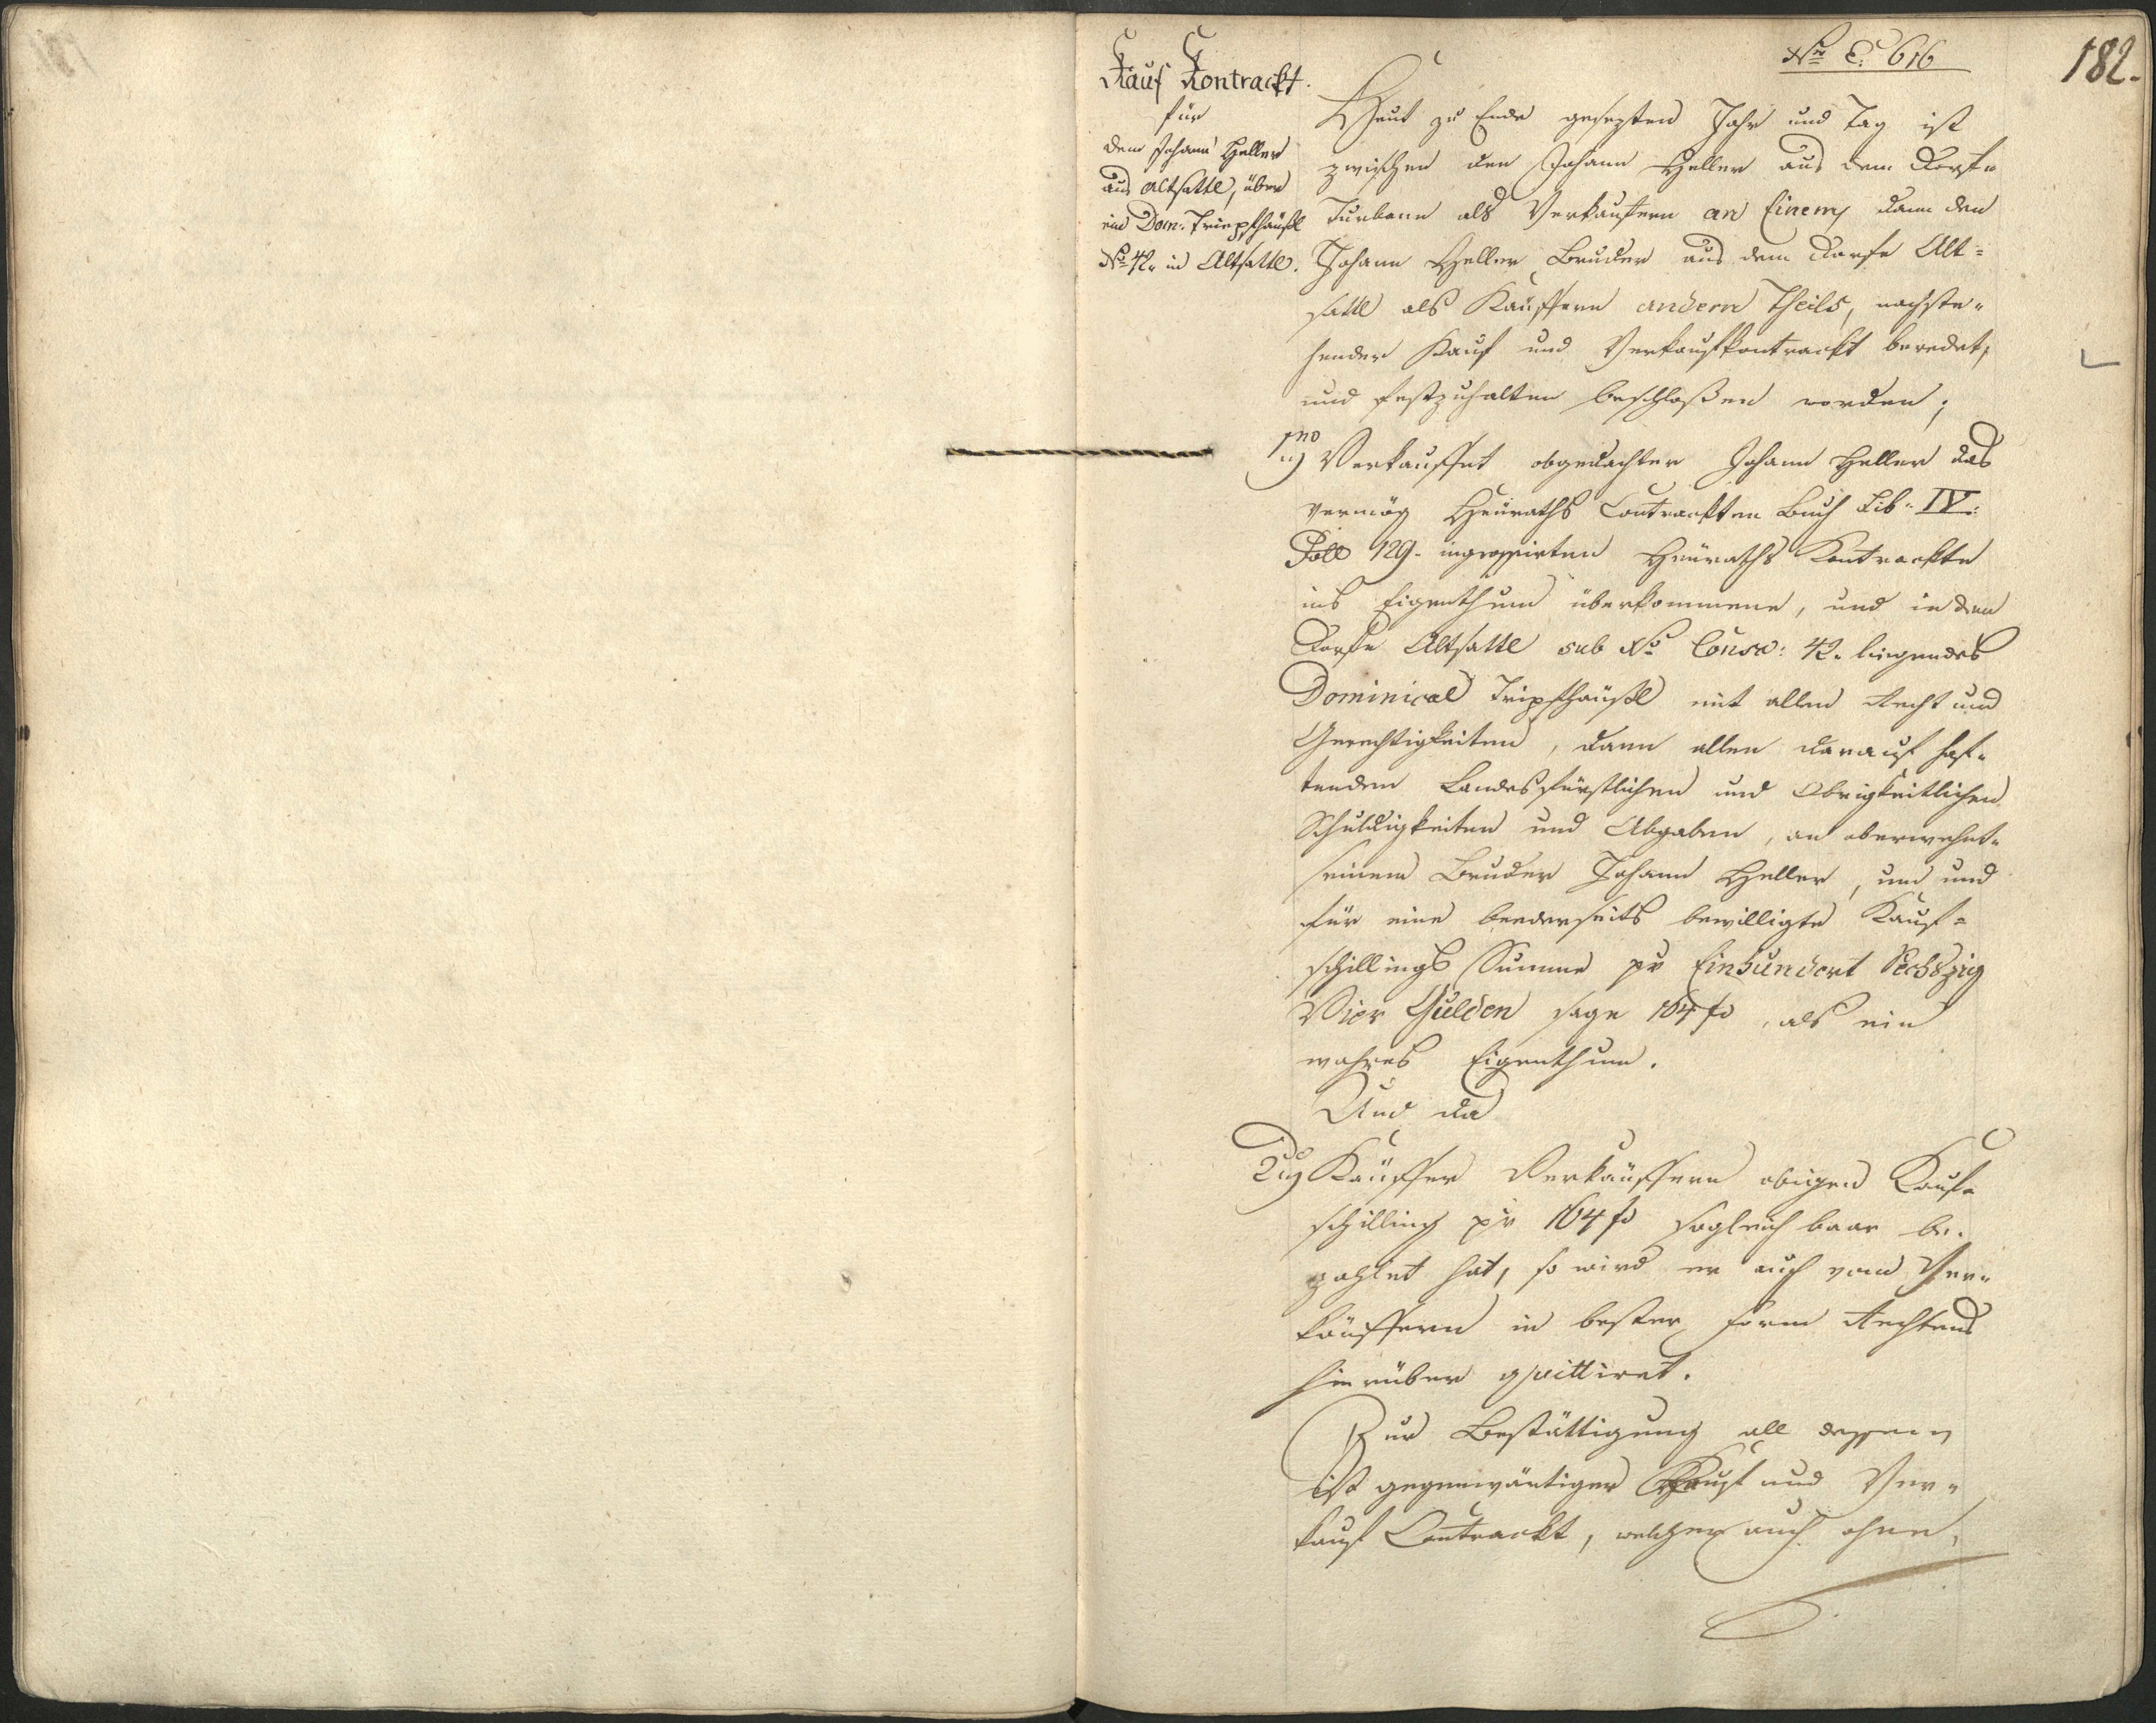 182.
Nro E. 616
Kauf Kontrackt.
für
dem Johann Heller
aus Altsattl, über
ein Dom. Tripfhäußl
Nro 42. in Altsattl.
Heut zu Ende gesezten Jahr und Tag ist
zwischen den Johann Heller aus dem Dorfe
als Verkaufern an Einem, dann den
Johann Heller Bruder aus dem Dorfe Alt=
sattl als Käuffern andern Theils, nachste=
hender Kauf und Verkaufkontrackt beredet,
und festzuhalten beschloßen worden;
1mo Verkauffet obgedachter Johann Heller das
vermög Heuraths Contrackten Buch Lib. IV.
Foll 129. ingrossirten Heuraths Kontrackte
ins Eigenthum überkommene, und in den
Dorfe Altsattl sub No Consc: 42. liegendes
Dominical Tripfhäußl mit allen Recht und
Gerechtigkeiten, dann allen darauf haf=
tenden Landesfürstlichen und Obrigkeitlichen
Schuldigkeiten und Abgaben, an oberwehnt=
seinem Bruder Johann Heller, um und
für eine beederseits bewilligte Kauf=
schillings Summe pr Einhundert Sechszig
Vier Gulden sage 164 fl, als ein
wahres Eigenthum.
Und da
2do Käuffer Verkäuffern obigen Kauf=
schilling pr 164 fl sogleich baar be=
zahlet hat, so wird er auch vom Ver=
käuffern in bester Form Rechtens
hierüber quittiret.
Zur Bestättigung all dessen
ist gegenwärtiger Kauf und Ver=
kauf Contrackt, welcher auch ohne